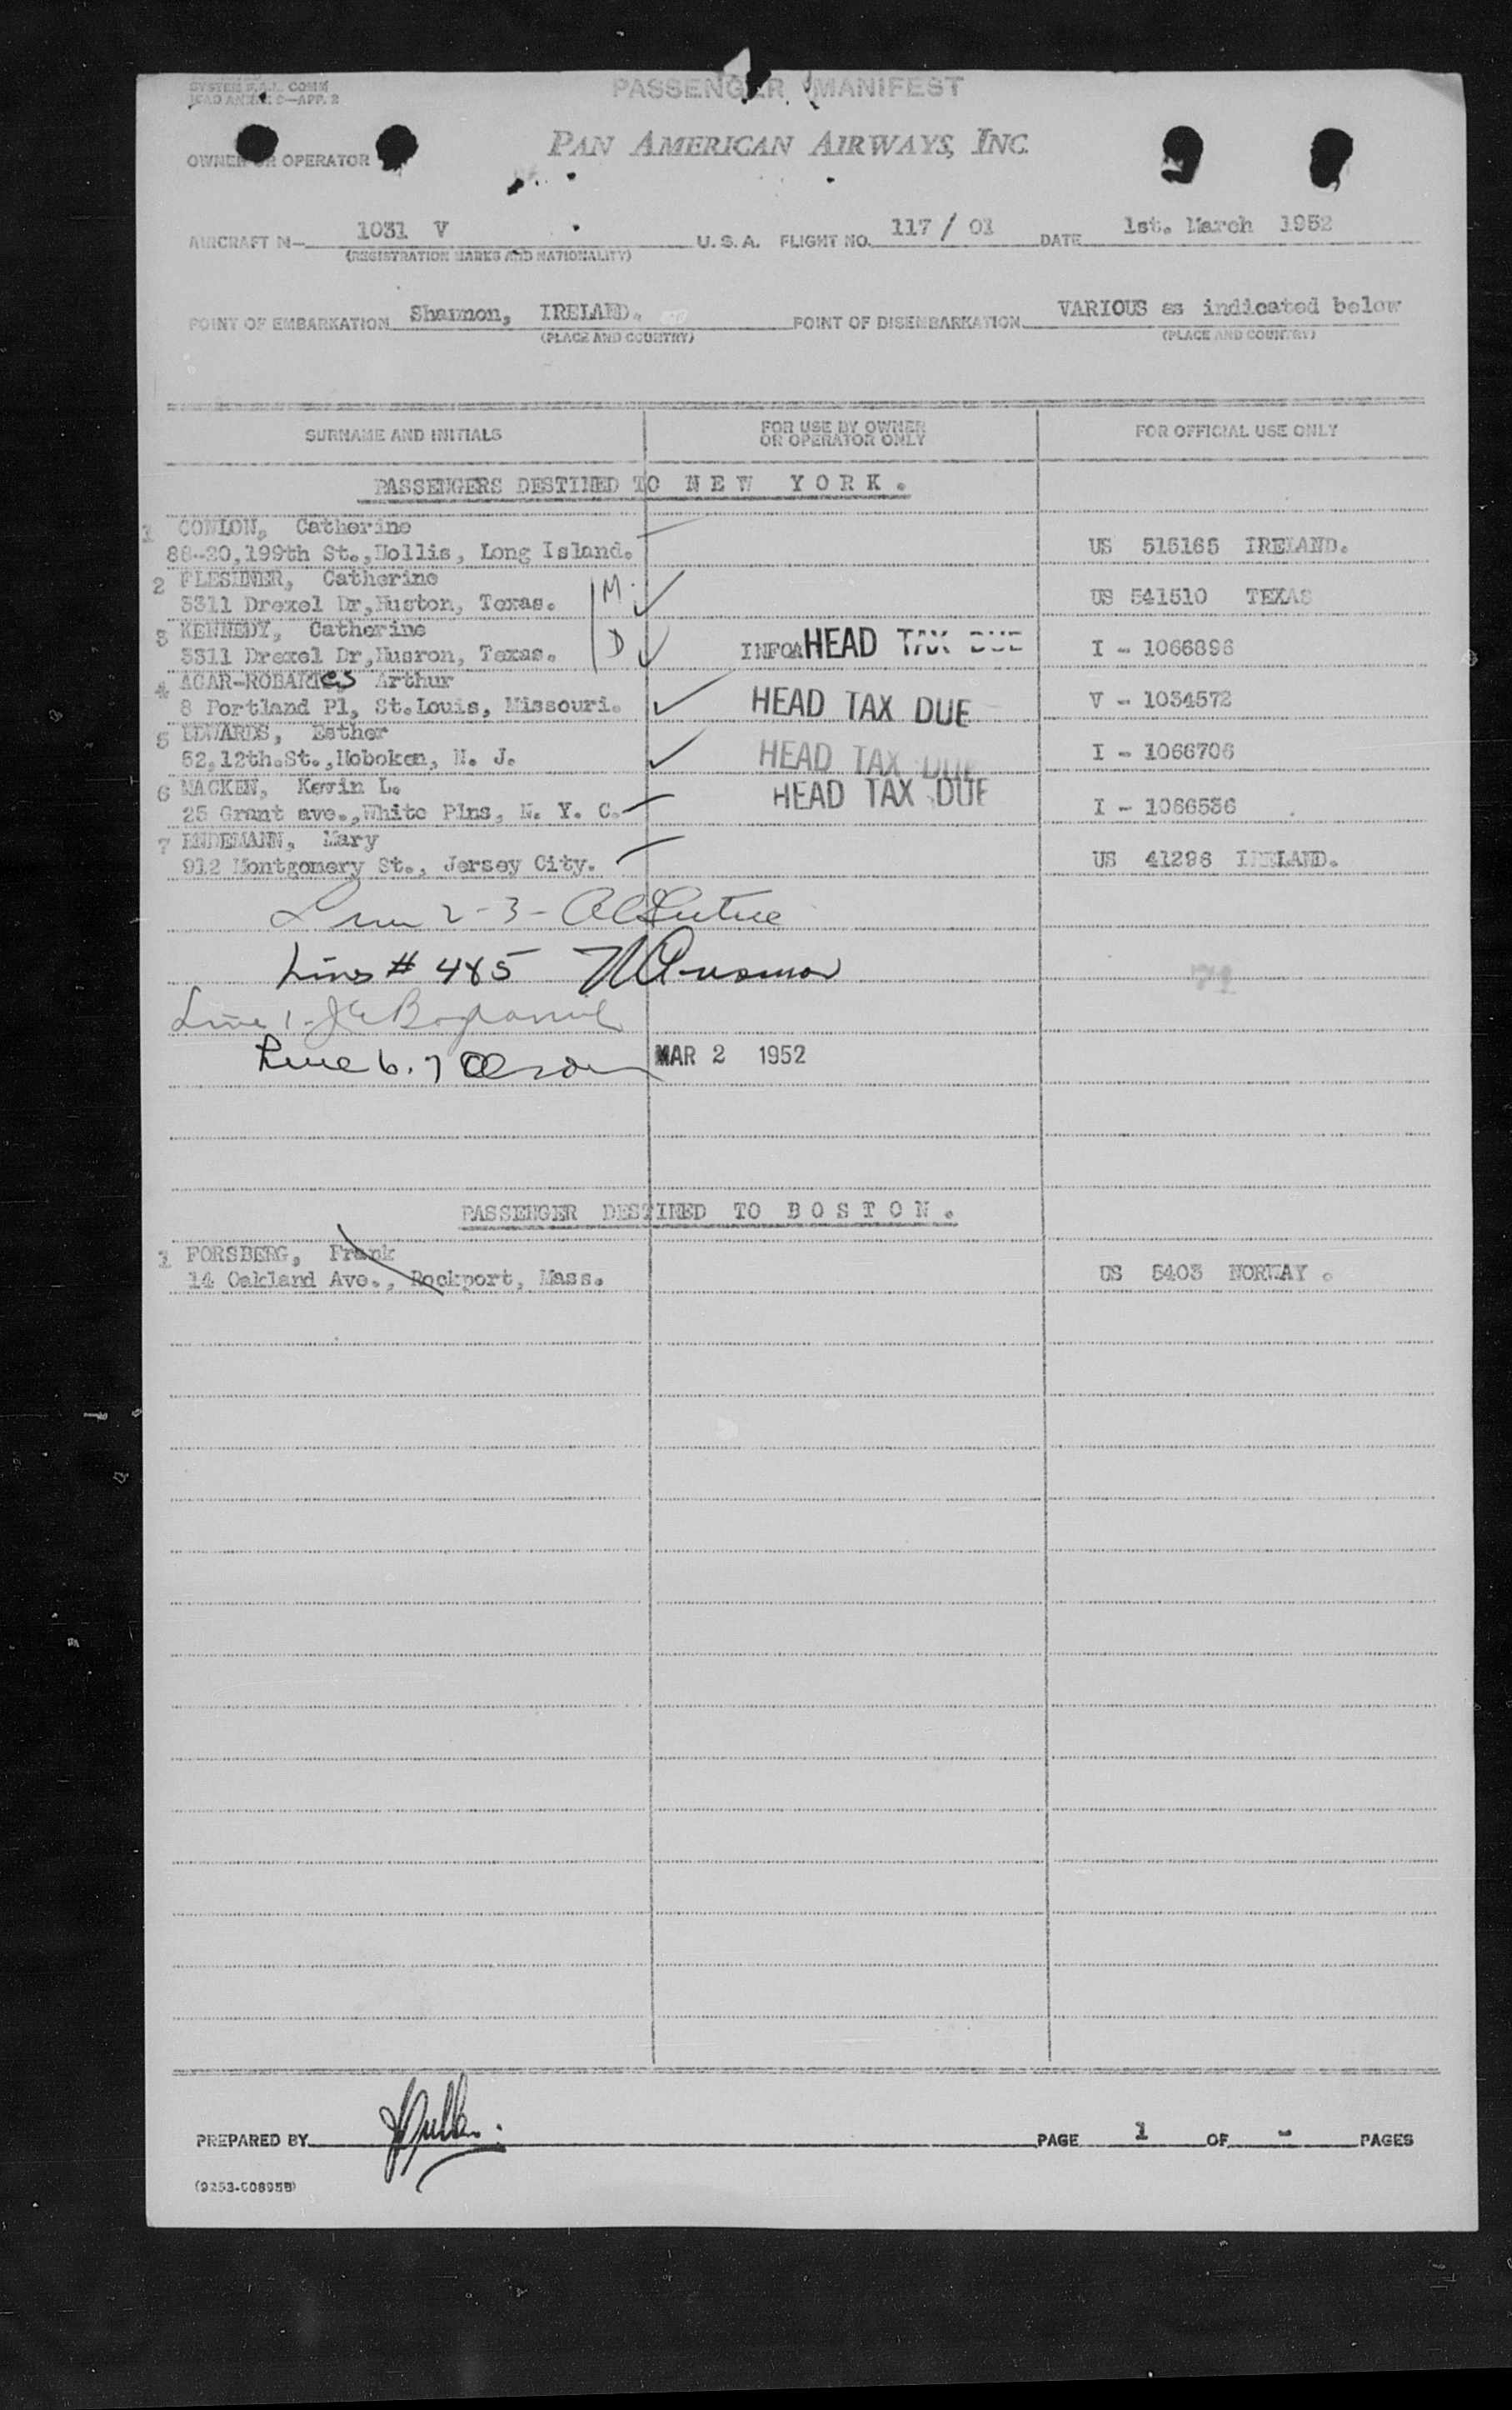 PASSENGER MANIFEST
OWNER OR OPERATOR
PAN AMERICAN AIRWAYS, INC.
AIRCRAFT N- 1031 V U. S. A. FLIGHT NO. 117 / 01 DATE 1st. March 1952
(REGISTRATION MARKS AND NATIONALITY)
POINT OF EMBARKATION Shannon, IRELAND. POINT OF DISEMBARKATION VARIOUS as indicated below
(PLACE AND COUNTRY) (PLACE AND COUNTRY)
SURNAME AND INITIALS FOR USE BY OWNER OR OPERATOR ONLY FOR OFFICIAL USE ONLY
PASSENGERS DESTINED TO N E W Y O R K .
1 CONLON, Catherine
88-20,199th St.,Hollis, Long Island. US 515165 IRELAND.
2 Catherine
5311 Drexel Dr,Huston, Texas. M. US 541510 TEXAS
3 KENNEDY, Catherine
5311 Drexel Dr,Husron, Texas. D HEAD TAX DUE I - 1066896
4 ACAR-ROBARTes Arthur
8 Portland Pl, St.Louis, Missouri. HEAD TAX DUE V - 1034572
5 EDWARDS, Esther
52,12th.St.,Hoboken, N. J. HEAD TAX DUE I - 1066706
6 MACKEN, Kevin L.
25 Grant ave.,White Plns, N. Y. C. HEAD TAX DUE I - 1066536
7 ENDEMANN, Mary
912 Montgomery St., Jersey City. US 41296 IRELAND.
2-3-
Lines # 4&5
Line 1-
Line 6.7 Olson MAR 2 1952
PASSENGER DESTINED TO B O S T O N .
1 FORSBERG, Frank
14 Oakland Ave., Rockport, Mass. US 5403 NORWAY .
PREPARED BY PAGE 1 OF - PAGES